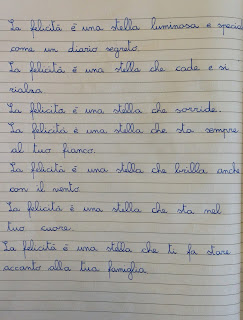 La felicità è una stella luminosa e special
come un diario segreto.
La felicità è una stella che cade e si
rialza
La felicita è una stella che sorride.
La felicità è una stella che sta sempre
al tuo fianco.
La felicità è una stella che brilla anche
con il vento.
La felicità è una stella che sta nel
tuo cuore.
La felicità è una stella che ti fa stare
accanto alla tua famiglia